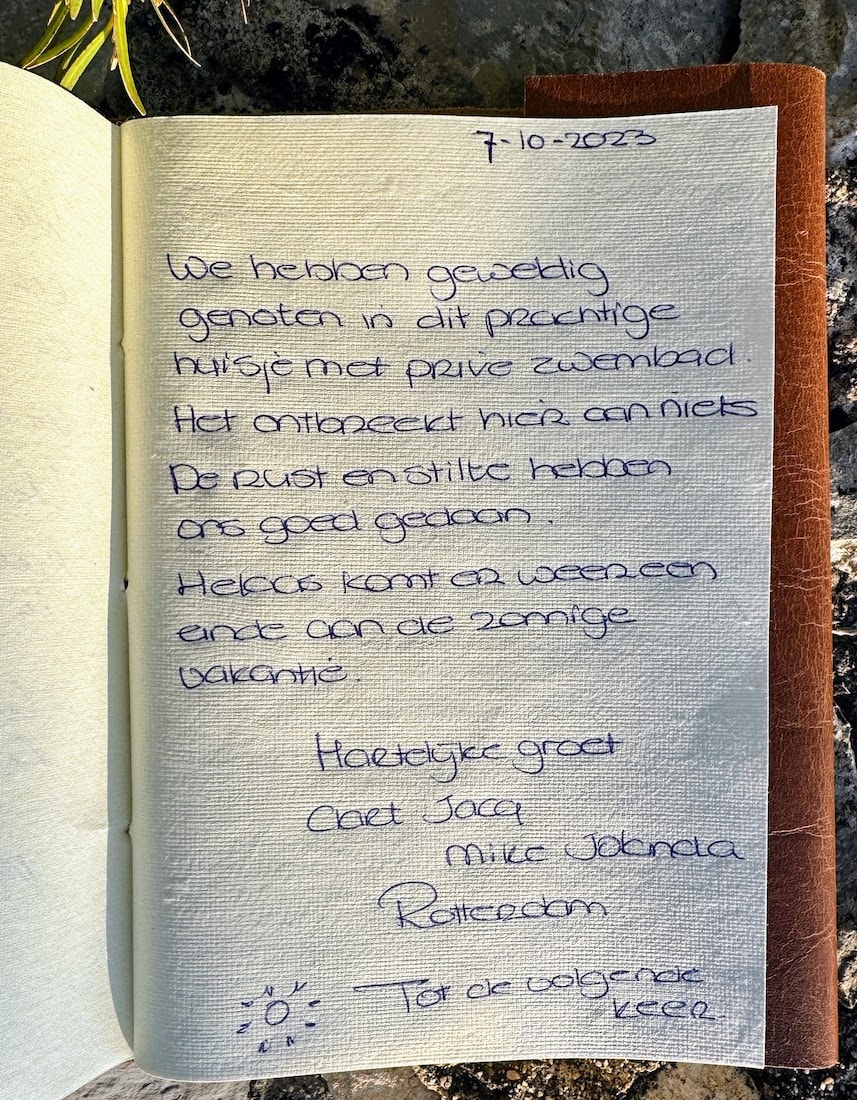 7-10-2023
We hebben geweldig
genoten in dit prachtige
huisje met privé zwembad.
Het ontbreekt hier aan niets
De rust en stilte hebben
ons goed gedaan.
Helaas komt er weer een
einde aan de zonnige
vakantie.
Hartelijke groet
Jacq
Mike Jolanda
Rotterdam
Tot de volgende
keer.